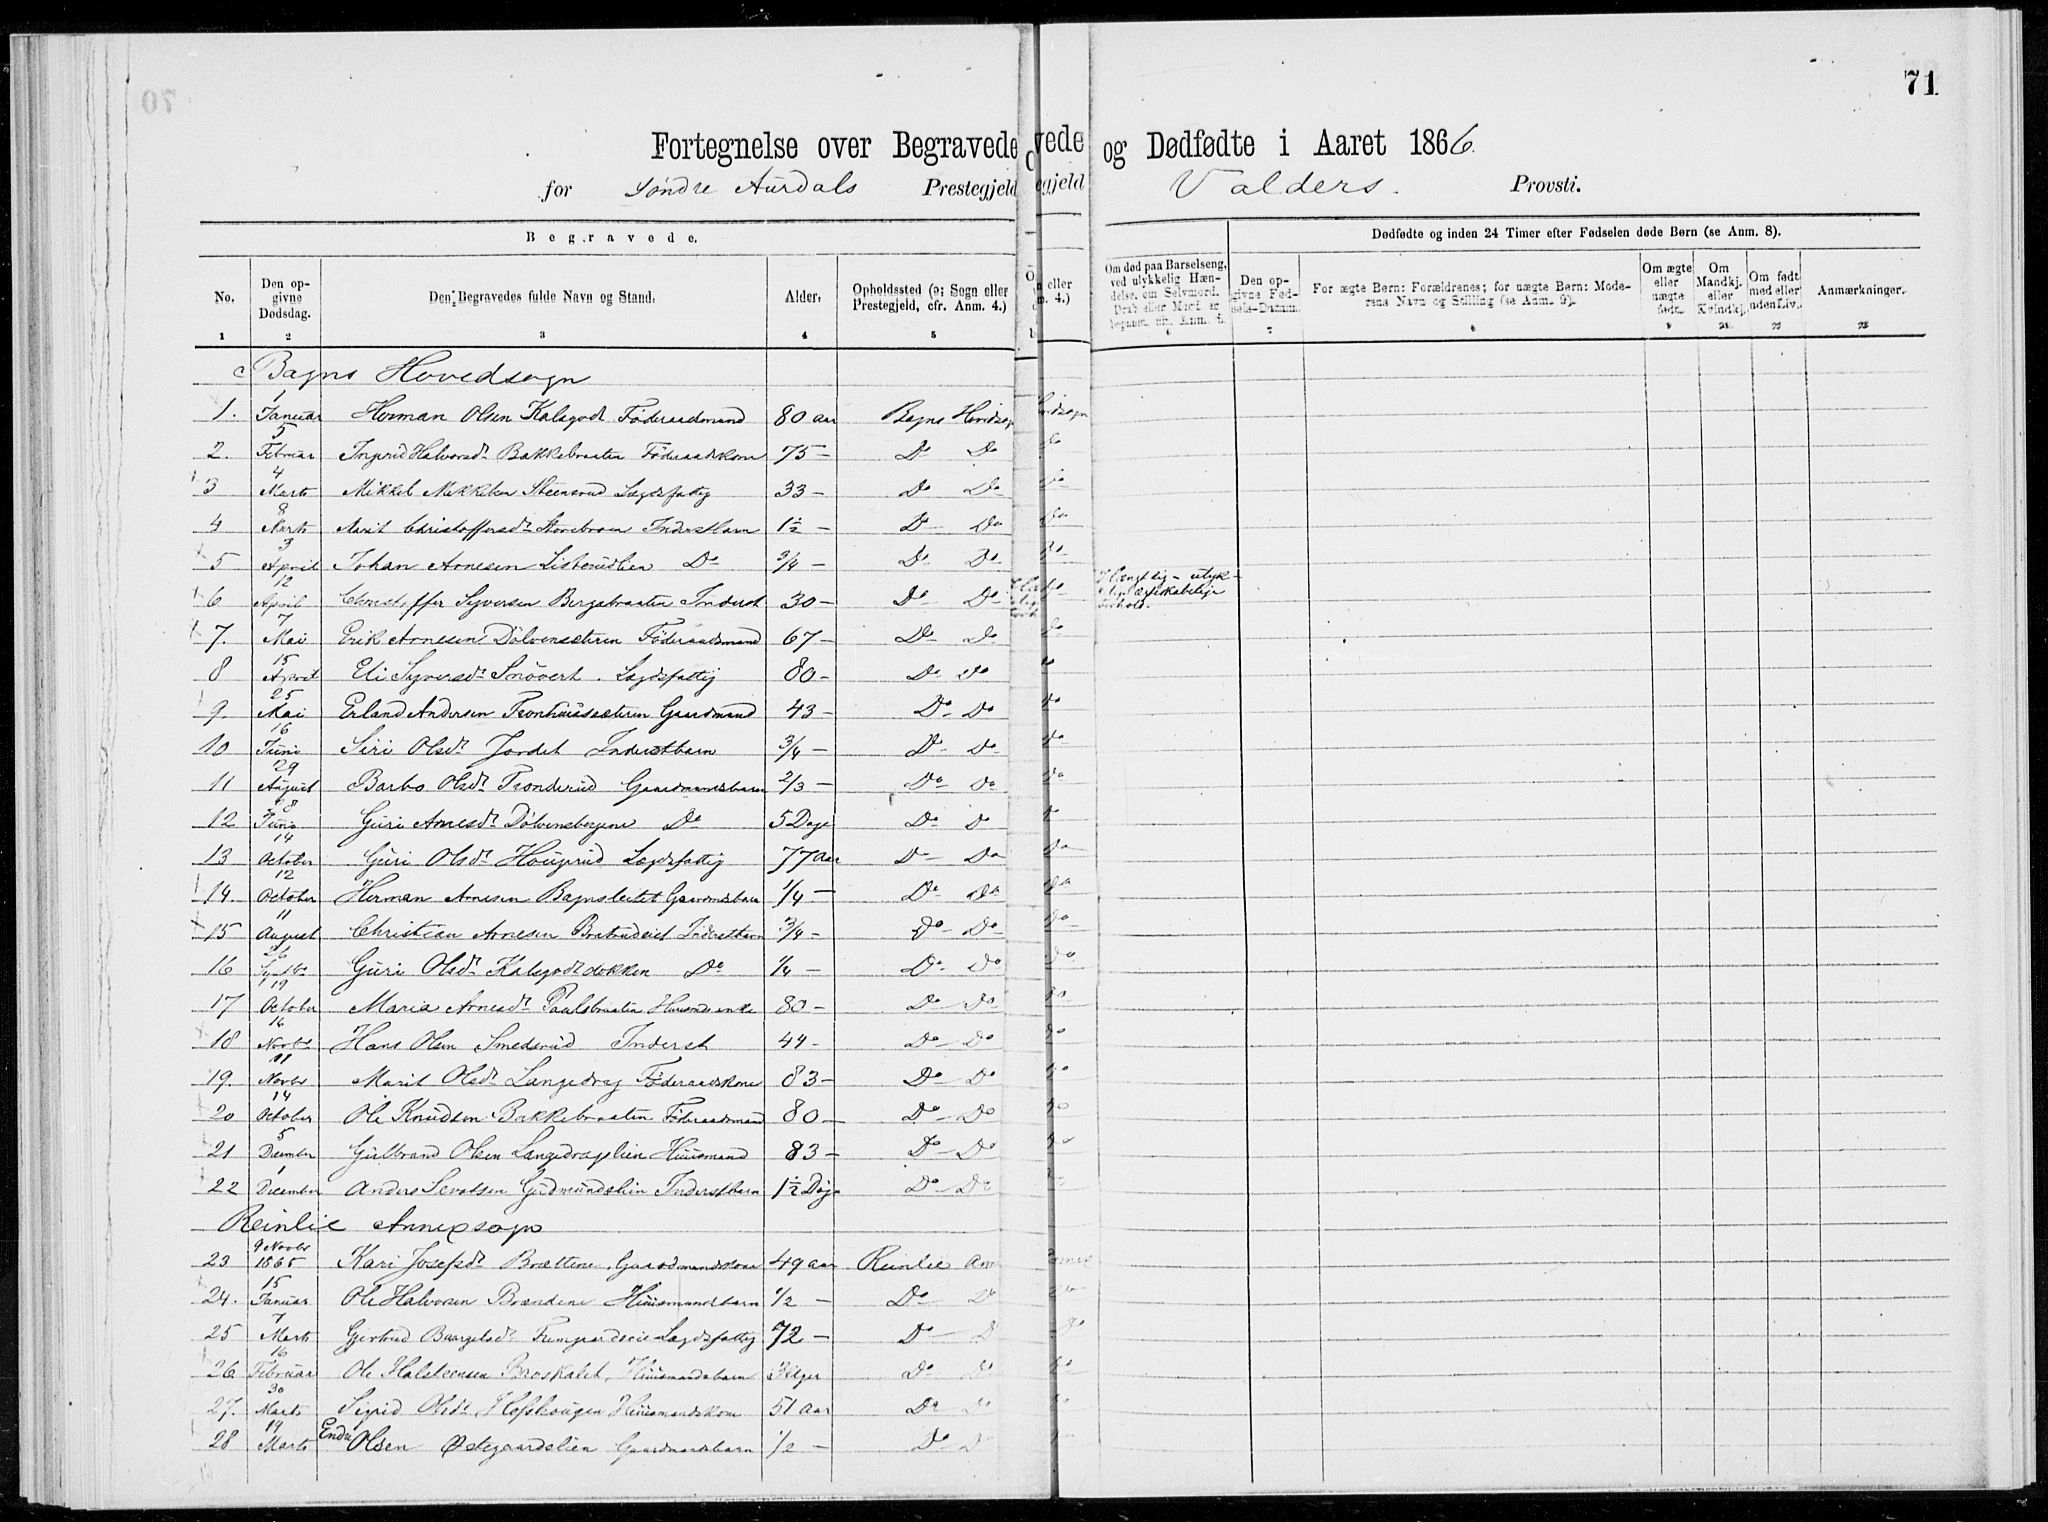 71
Fortegnelse over Begravede og Dødfødte i Aaret 1866.
for Søndre Aurdals Prestegjeld Valders. Provsti.
Begravede.
Dødfødte og inden 24 Timer efter Fødselen døde Børn (se Anm. 8).
No. Den opgivne Dødsdag. Den Begravedes fulde Navn og Stand. Alder. Opholdssted (ɔ: Sogn eller Prestegjeld, cfr. Anm. 4.) Om død paa Barselseng, ved ulykkelig Hændelse, om Selvmord, Drab eller Mord er begaaet. Den opgivne Fødsels-Datum. For ægte Børn: Forældrenes; for uægte Børn: Moderens Navn og Stilling (se Anm. 9). Om ægte eller uægte født. Om Mandkj. eller Kvindkj. Om født med eller uden Liv. Anmærkninger.
1 2 3 4 5 6 7 8 9
Bagns Hovedsogn
1. 1 Januar Herman Olsen Kalsgodt Føderaadsmand 80 aar Bagns Hovedsogn
2. 5 Februar Ingrid Halvorsdr Bakkebraaten Føderaadskone 75 – Do Do
3 4 Marts Mikkel Mikkelsen Steensrud Lægdsfattig 33 – Do Do
4 8 Marts Marit Christoffersdr Storebraaten Inderstbarn 1½ – Do Do
5 3 April Johan Arnesen Listerudlien Do 3/4 – Do Do
6 12 April Christoffer Syversen Bergabraaten Inderst 30 – Do Do
7. 7 Mai Erik Arnesen Dølvensæteren Føderaadsmand 67 – Do Do
8 15 April Eli Syversdr Snøvert Lægdsfattig 80 – Do Do
9. 25 Mai Erland Andersen Tronhuussæteren Gaardmand 43 – Do Do
10 16 Juni Siri Olsdr Jordet Inderstbarn 3/4 – Do Do
11 29 August Barbo Olsdr Tronderud Gaardmandsbarn 2/3 – Do Do
12 8 Juni Guri Arnesdr Dølvensbergene Do 5 Dage Do Do
13 14 October Guri Olsdr Hougerud Lægdsfattig 77 Aar Do Do
14. 12 October Herman Arnesen Bagnsleitet Gaardmdsbarn 1/4 – Do Do
15 11 August Christian Arnesen Bratrudeiet Inderstbarn 3/4 – Do Do
16 26 Guri Olsdr Kalsgodtdokken Do 1/4 – Do Do
17 19 October Maria Arnesdr Paalsbraaten Huusmdsenke 80 – Do Do
18 16 Novbr Hans Olsen Smedsrud Inderst 44 – Do Do
19. 11 Novbr Marit Olsdr Langedrag Føderaadskone 83 – Do Do
20 14 October Ole Knudsen Bakkebraaten Føderaadsmand 80 – Do Do
21 5 December Gulbrand Olsen Langedragslien Huusmand 83 – Do Do
22 1 December Anders Sevatsen Gudmundslien Inderstbarn 1½ Dage Do Do
Reinlie Annexsogn
23 9 Novbr 1865 Kari Josefsdr Brættene Gaardmandskone 49 aar Reinlie
24. 15 Januar Ole Halvorsen Brændene Huusmandsbarn 1/2 – Do Do
25 7 Marts Gjertrud Lægdsfattig 72 – Do Do
26 16 Februar Ole Halsteensen Broskalet Huusmandsbarn 3 Uger Do Do
27. 30 Marts Sigrid Olsdr Hofshougen Huusmandskone 51 aar Do Do
28 19 Marts Endre Olsen Østegaardslien Gaardmandsbarn 1/2 – Do Do